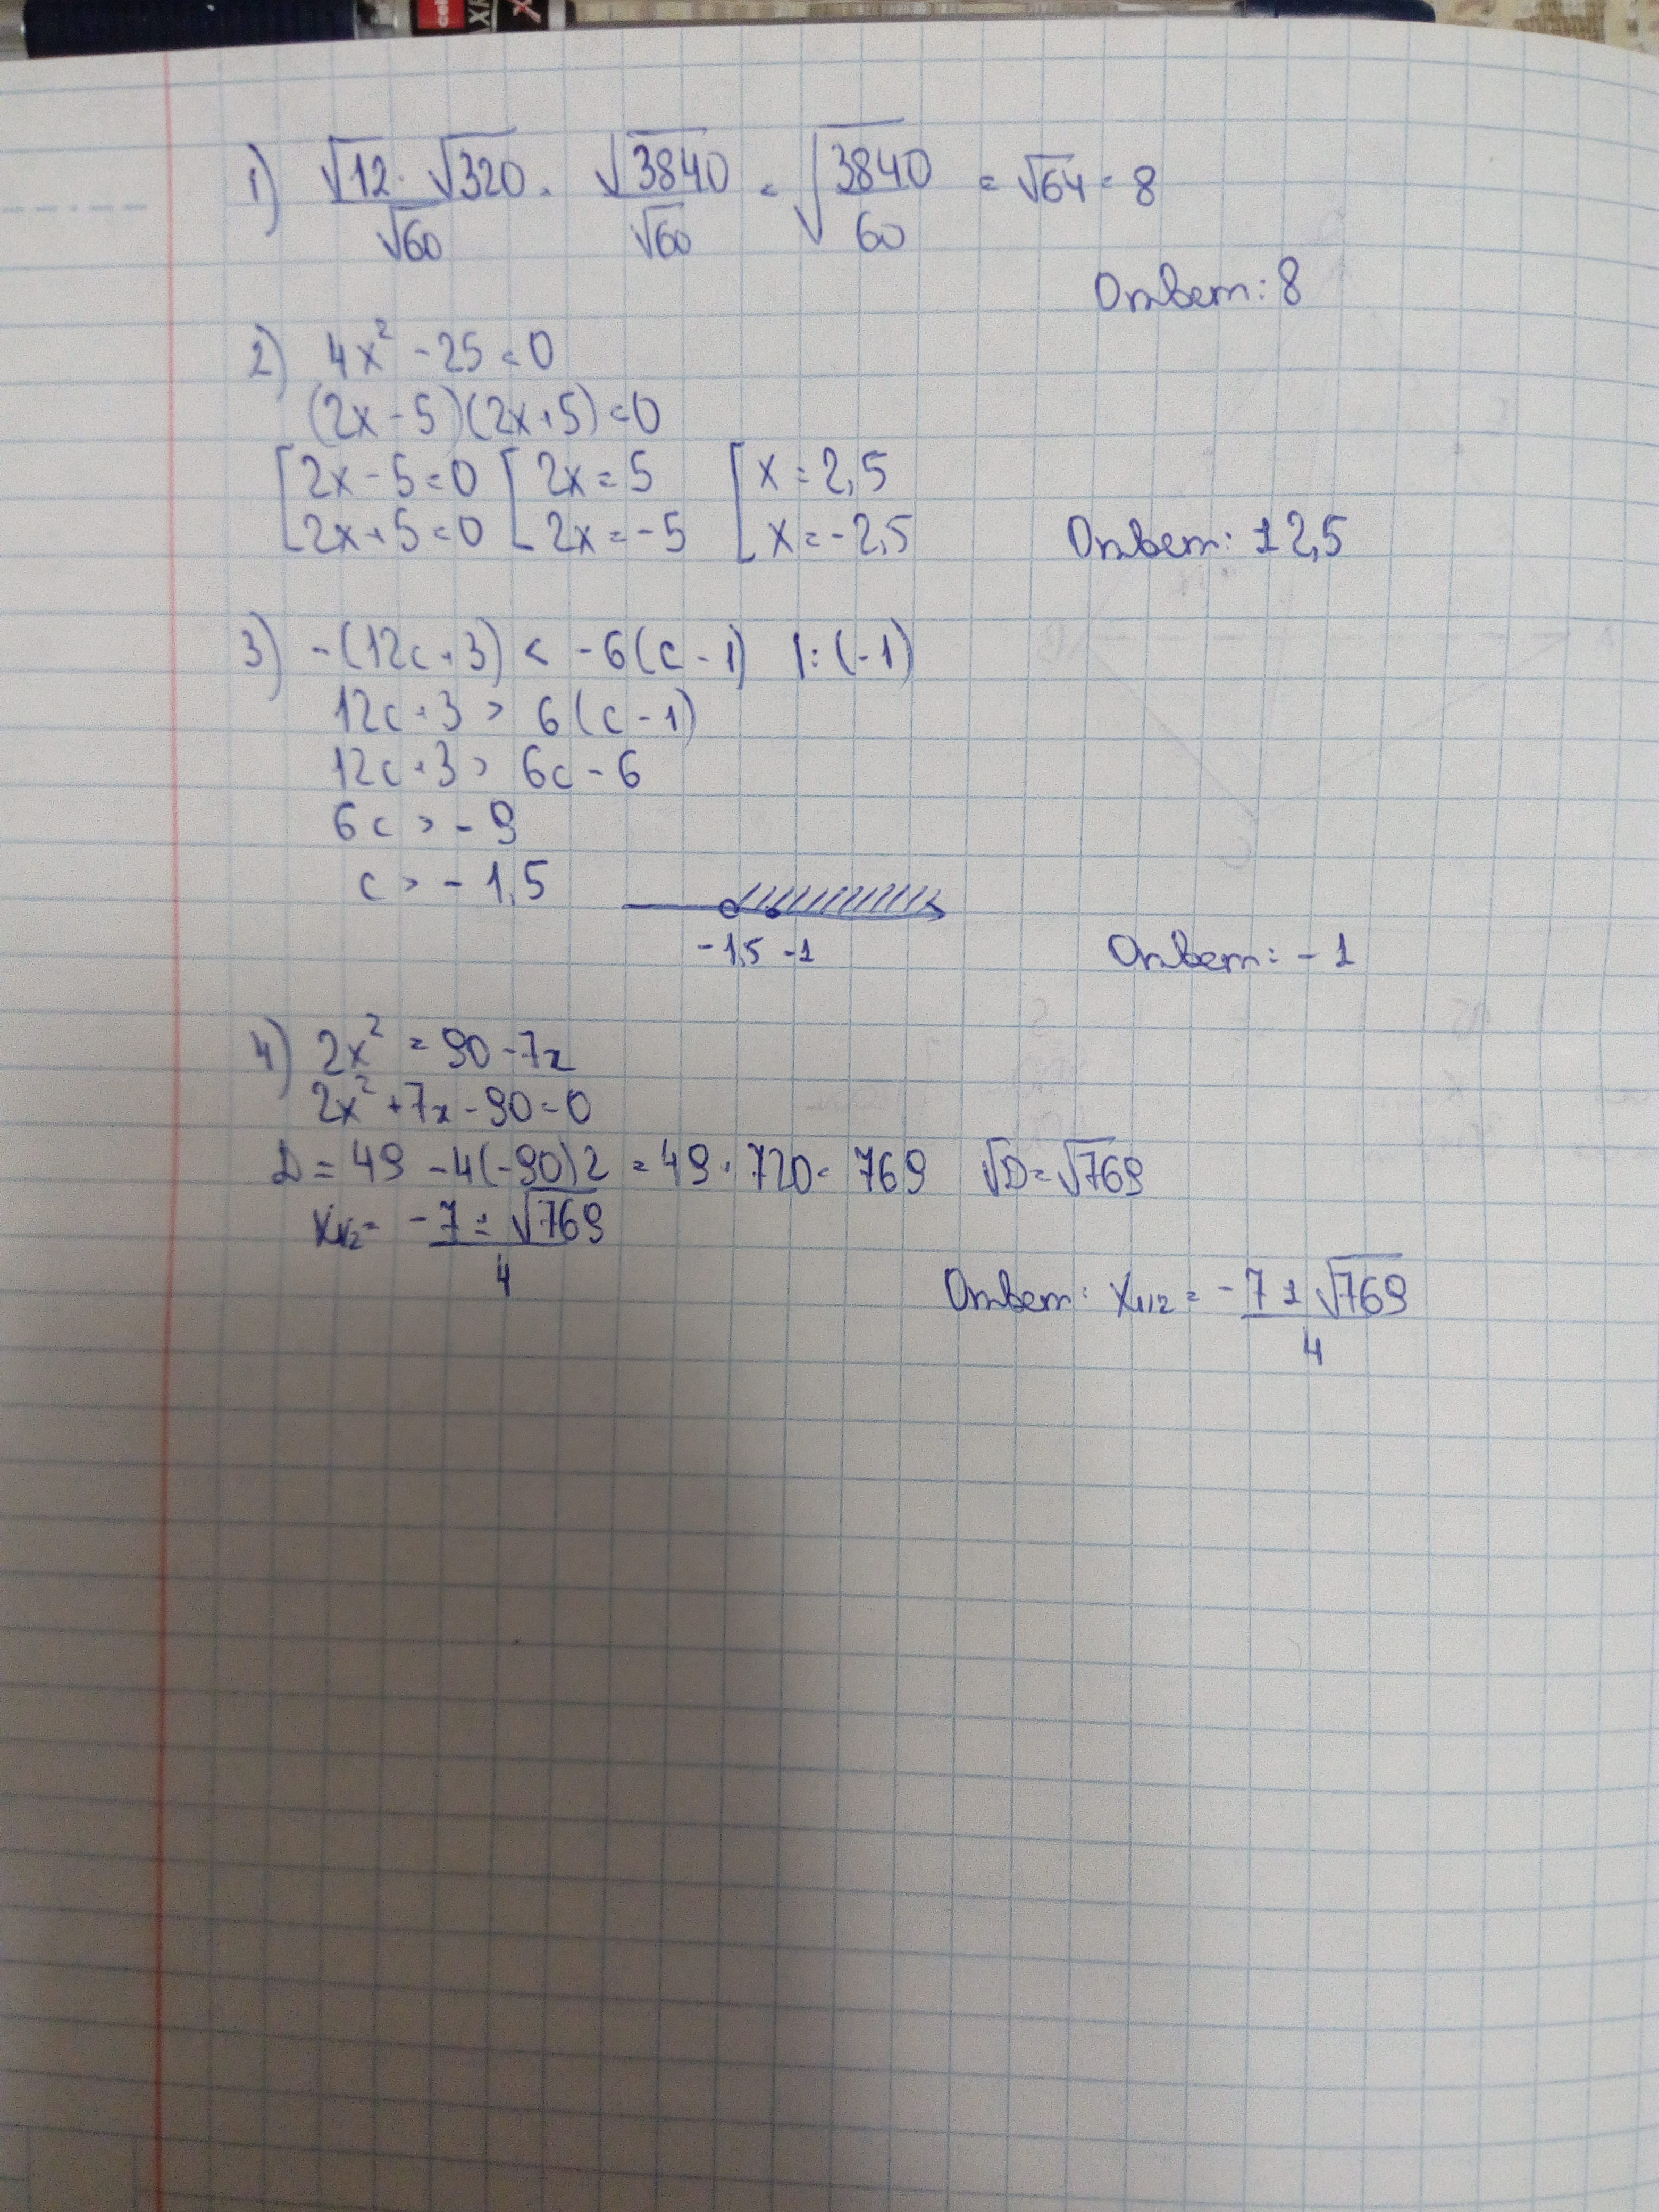 1) √12 · √320 / √60 = √3840 / √60 = √(3840/60) = √64 = 8
Ответ: 8
2) 4x² - 25 = 0
(2x - 5)(2x + 5) = 0
[2x - 5 = 0 [2x = 5 [x = 2,5
[2x + 5 = 0 [2x = -5 [x = -2,5
Ответ: ±2,5
3) -(12c + 3) < -6(c - 1) |: (-1)
12c + 3 > 6(c - 1)
12c + 3 > 6c - 6
6c > -9
c > -1,5
-1,5 -1
Ответ: -1
4) 2x² = 90 - 7x
2x² + 7x - 90 = 0
D = 49 - 4(-90)2 = 49 + 720 = 769 √D = √769
x₁,₂ = (-7 ± √769) / 4
Ответ: x₁,₂ = (-7 ± √769) / 4